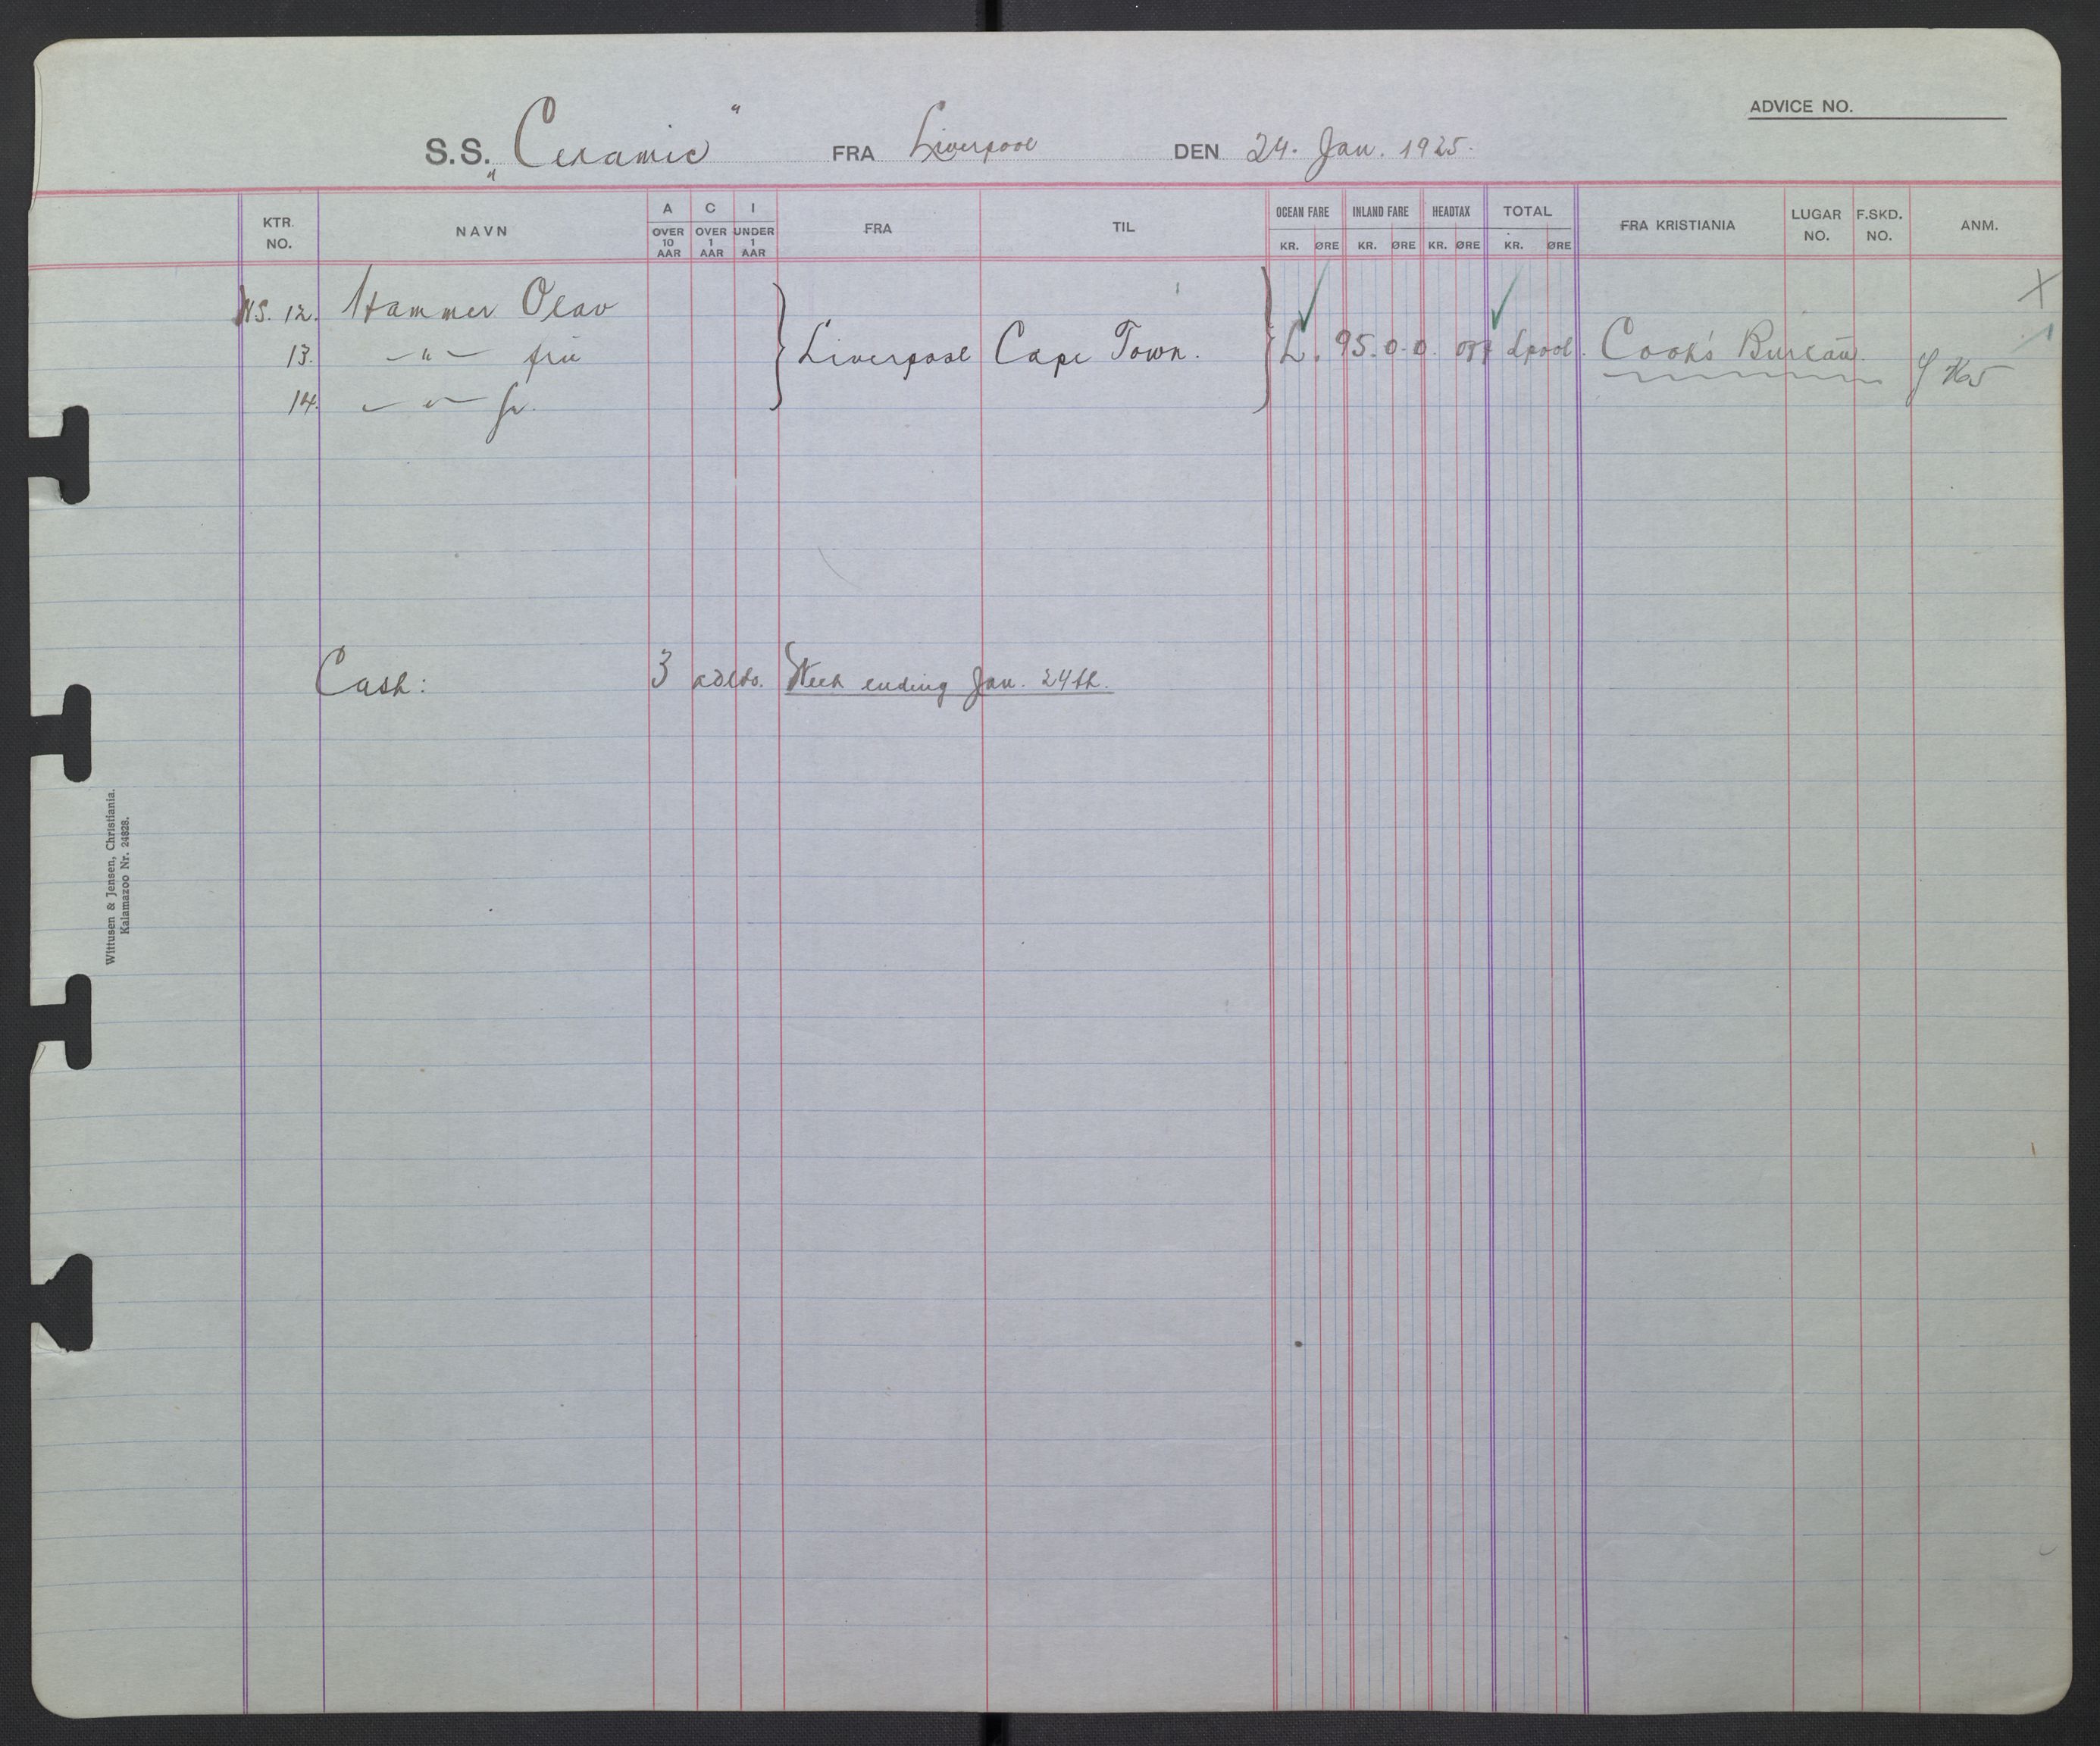 ADVICE NO.
S.S. "Ceramic" FRA Liverpool DEN 24. Jan. 1925.
KTR. NO. NAVN A OVER 10 AAR C OVER 1 AAR I UNDER 1 AAR FRA TIL OCEAN FARE KR. ØRE INLAND FARE KR. ØRE HEADTAX KR. ØRE TOTAL KR. ØRE FRA KRISTIANIA LUGAR NO. F.SKD. NO. ANM.
WS. 12. Hammer Olav
13. -"- fru Liverpool Cape Town. £. 95.0.0. off Lpool. Cook's Bureau
14. -"- fr.
Cash: 3 adlts. Week ending Jan. 24th.
Wittusen & Jensen, Christiania.
Kalamazoo Nr. 24828.